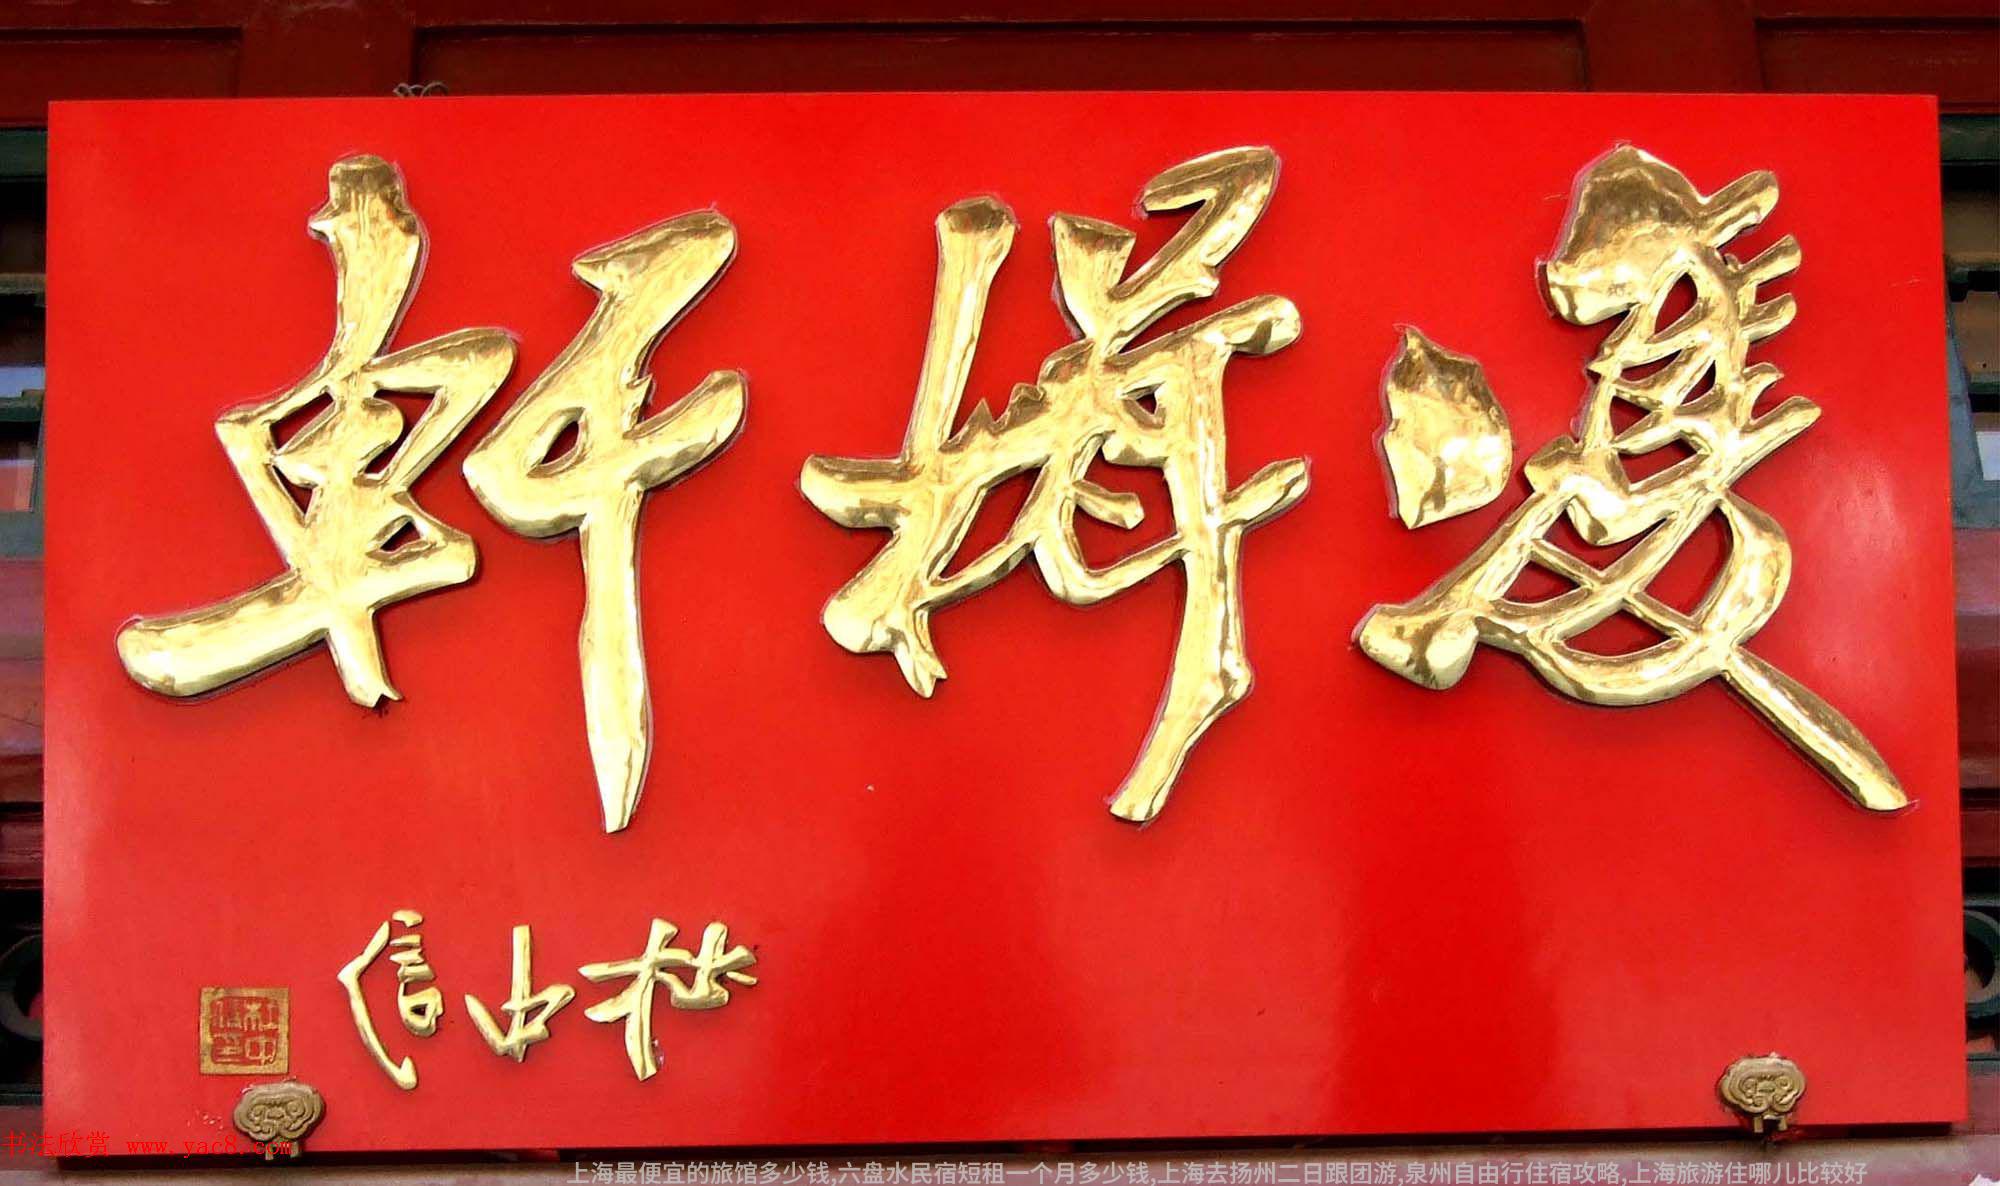 雙楫軒
杜中信
杜中信印
书法欣赏 www.yac8.com
上海最便宜的旅馆多少钱,六盘水民宿短租一个月多少钱,上海去扬州二日跟团游,泉州自由行住宿攻略,上海旅游住哪儿比较好